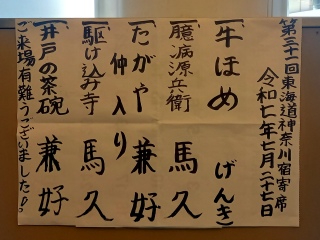 第三十一回東海道神奈川宿寄席
令和七年七月二十七日
一、牛ほめ げんき
一、臆病源兵衛 馬久
一、たがや 兼好
仲入り
一、駆け込み寺 馬久
一、井戸の茶碗 兼好
ご来場有難うございました!!